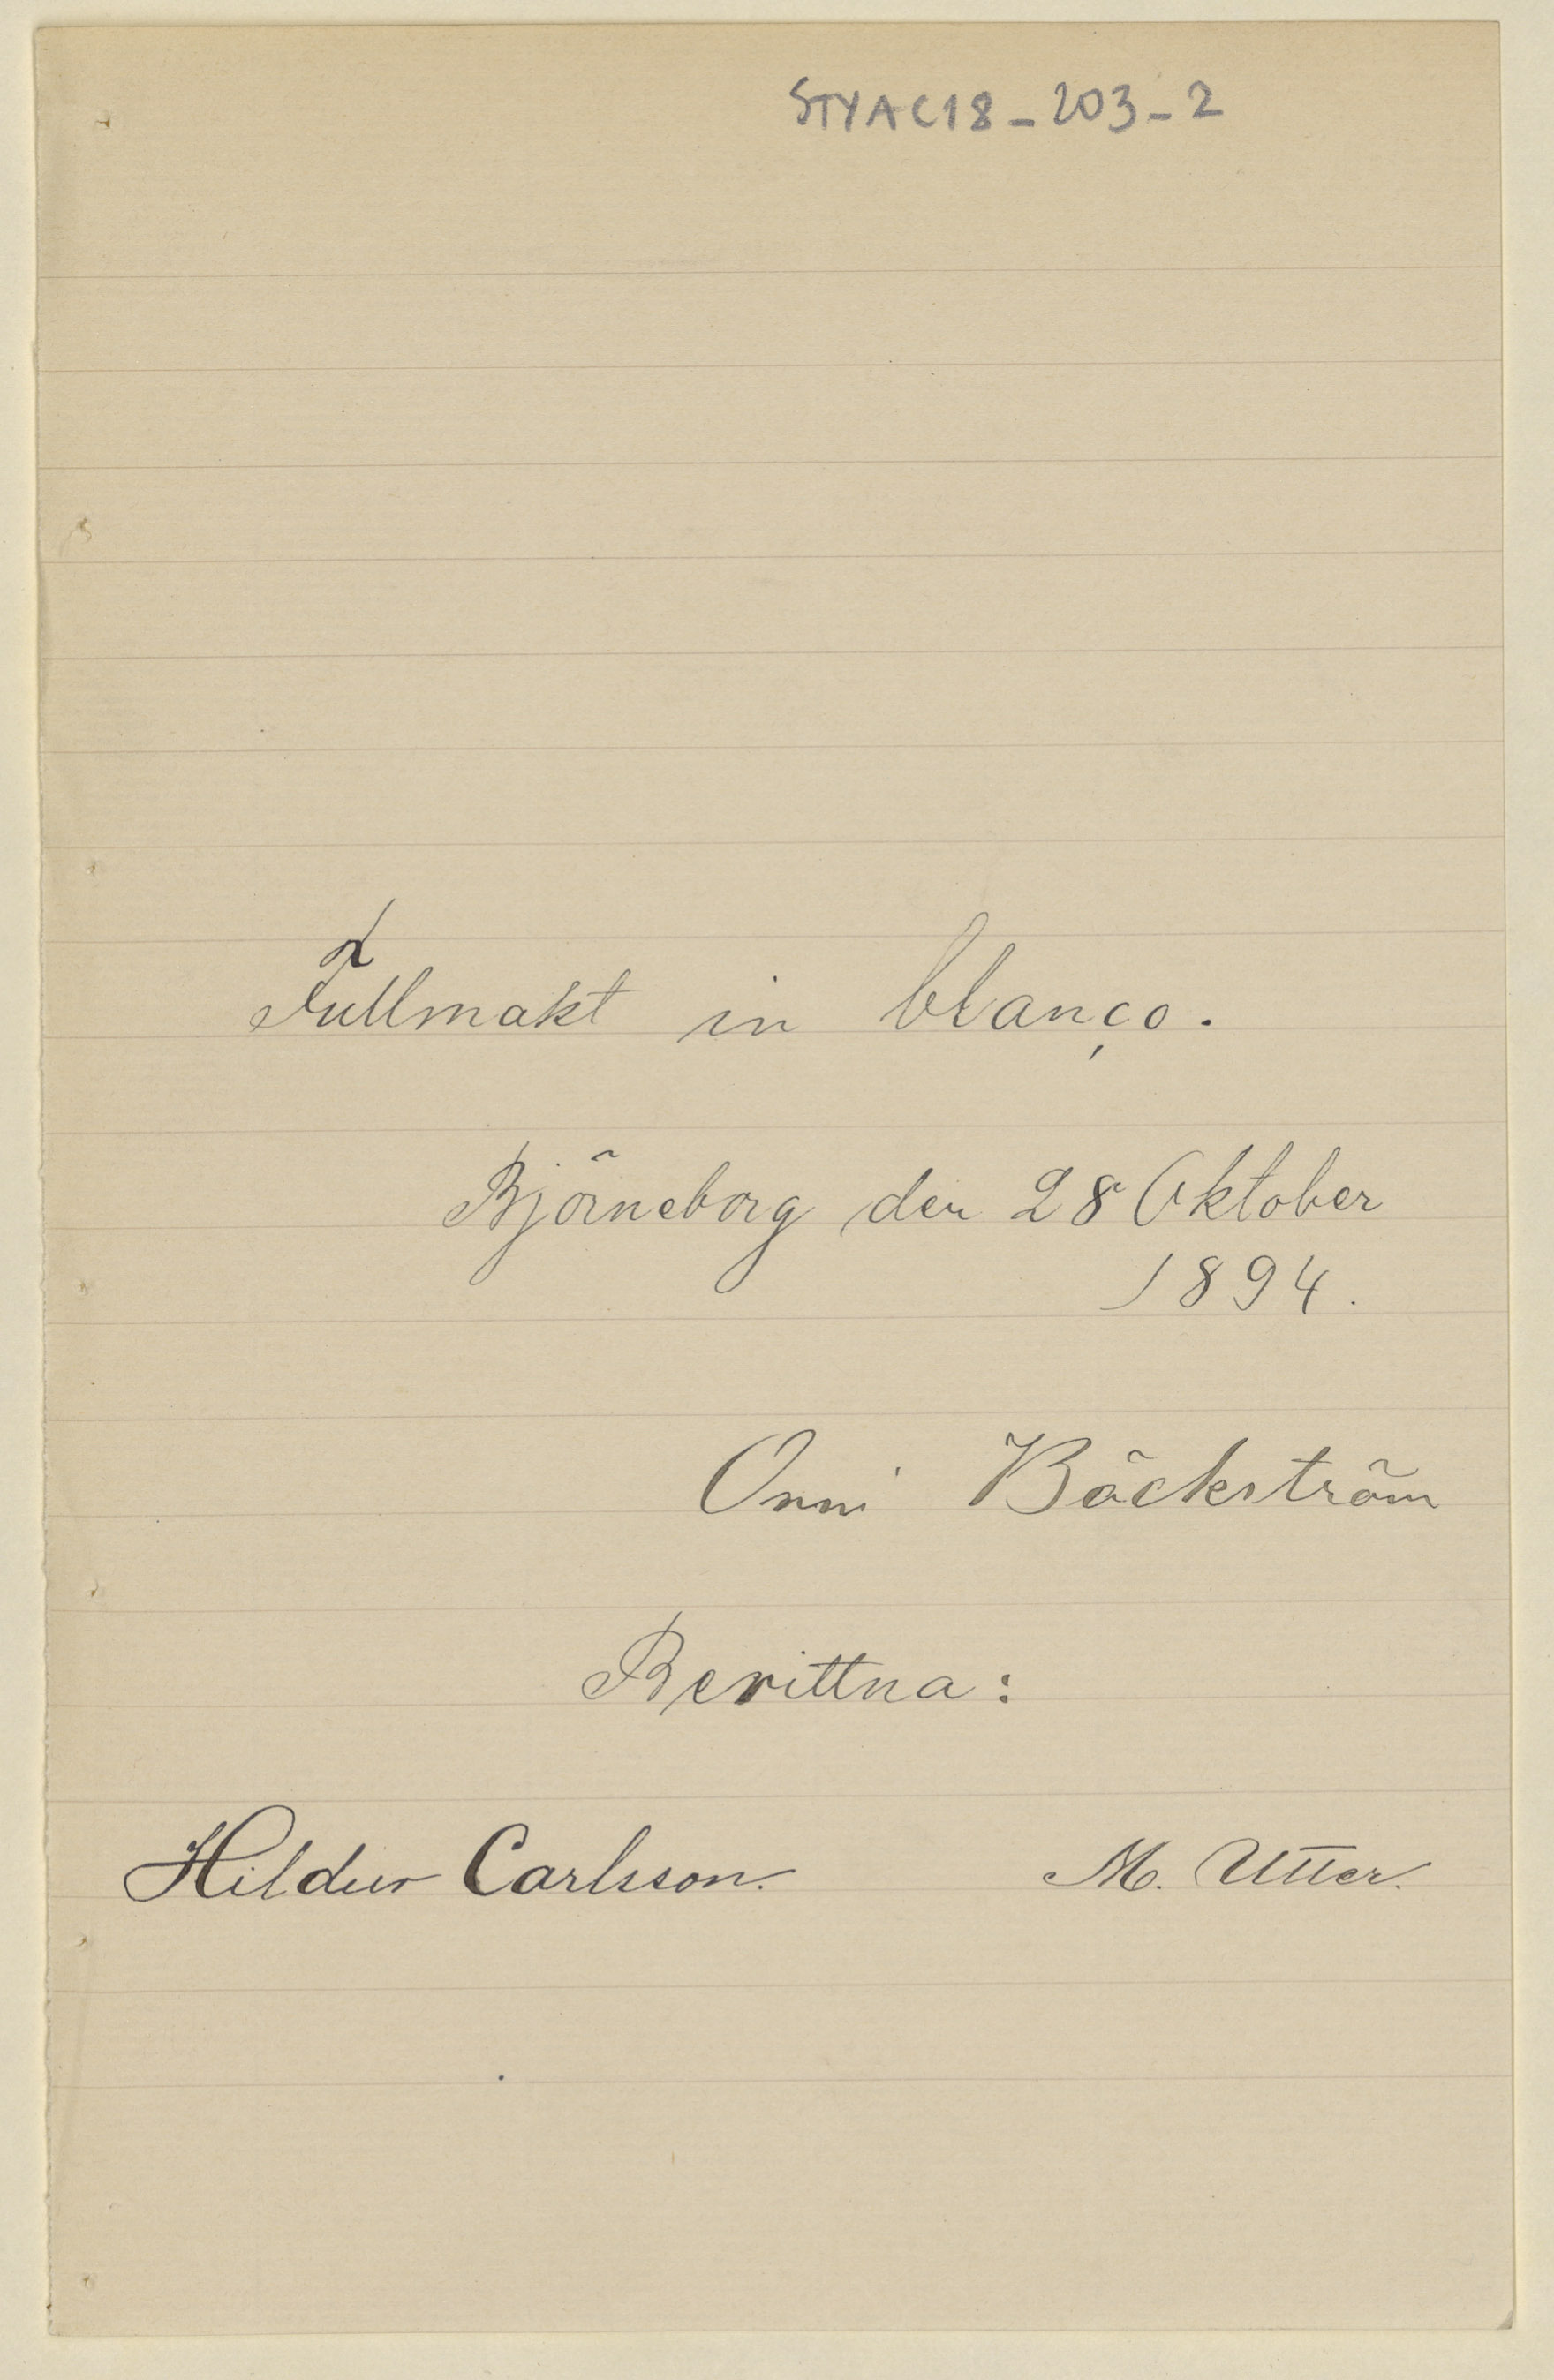 STYAC18_203_2
Fullmakt in blanço.
Björneborg den 28 Oktober
1894.
Onni Bäckström
Bevittna:
Hildur Carlsson. M. Utter.